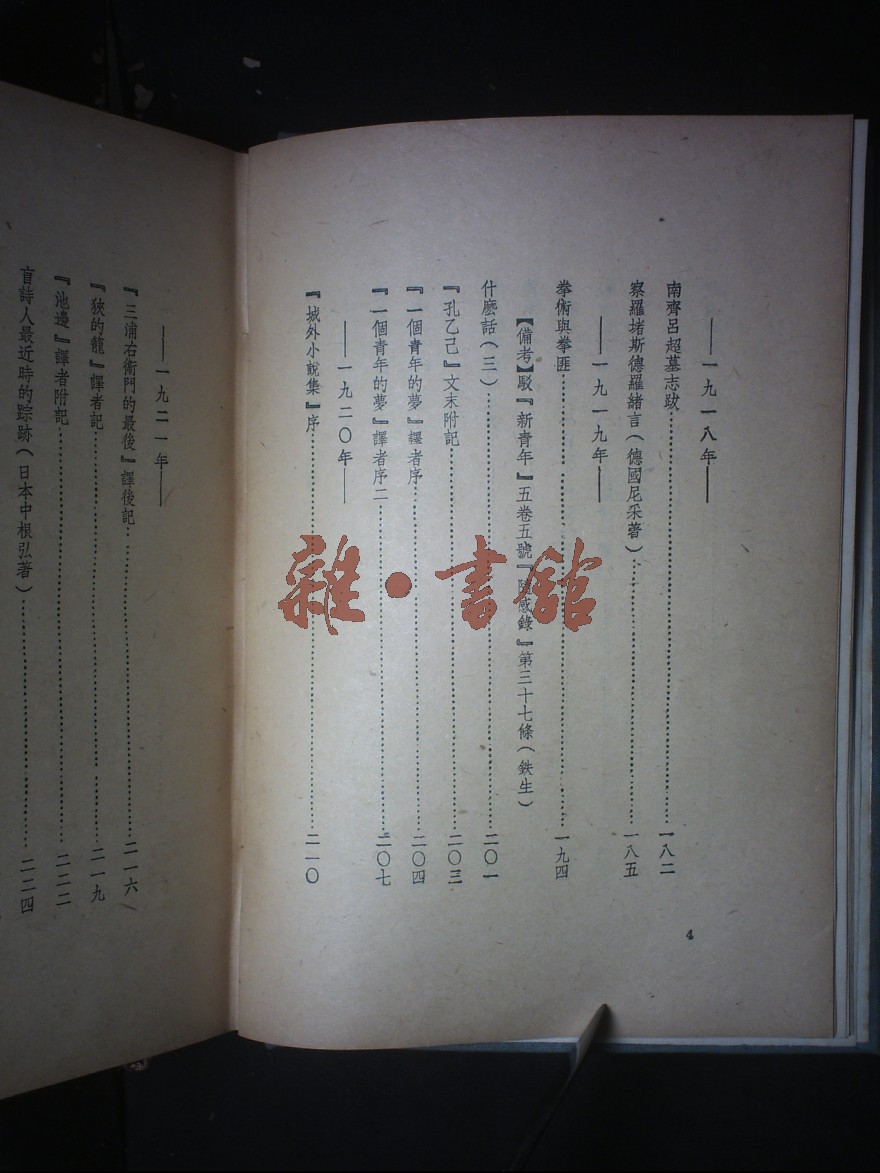 ——一九一八年——
南齊呂超墓志跋……一八二
察羅堵斯德羅緒言(德國尼采著)……一八五
——一九一九年——
拳術與拳匪……一九四
【備考】駁『新青年』五卷五號『隨感錄』第三十七條(鉄生)
什麽話(三)……二〇一
『孔乙己』文末附記……二〇三
『一個青年的夢』譯者序……二〇四
『一個青年的夢』譯者序二……二〇七
——一九二〇年——
『域外小說集』序……二一〇
4
——一九二一年——
『三浦右衛門的最後』譯後記……二一六
『狹的籠』譯者記……二一九
『池邊』譯者附記……二二二
盲詩人最近時的踪跡(日本中根弘著)……二二四
雜·書館